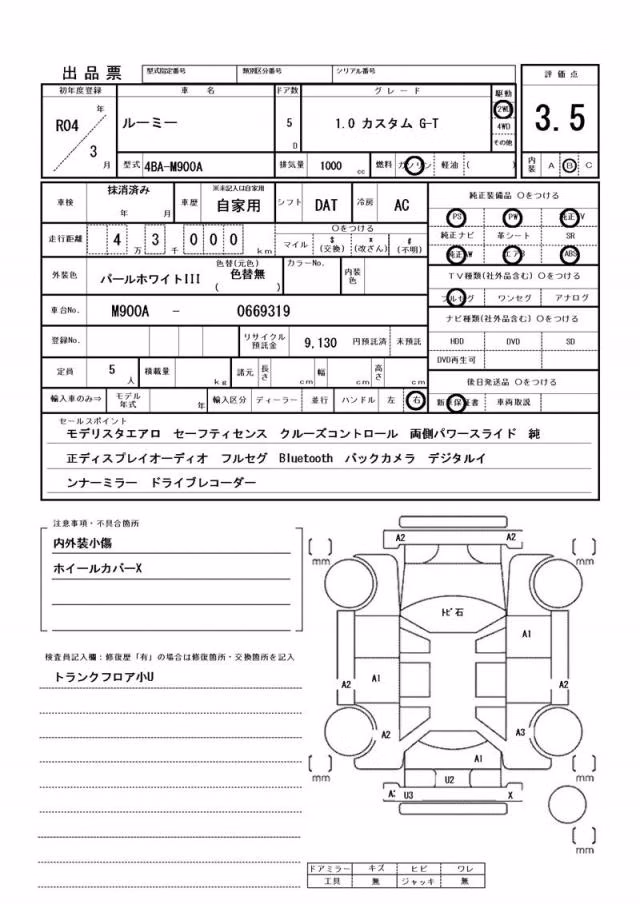 出品票 型式指定番号 類別区分番号 シリアル番号 評価点
初年度登録 車名 ドア数 グレード 駆動
R04 年 3 月 ルーミー 5 D 1.0 カスタム G-T 2WD 4WD その他 3.5
型式 4BA-M900A 排気量 1000 cc 燃料 ガソリン 軽油 ( ) 内装 A B C
車検 抹消済み 年 月 車歴 ※未記入は自家用 自家用 シフト DAT 冷房 AC 純正装備品 〇をつける
走行距離 4 万 3 千 0 0 0 km 〇をつける
マイル $ (交換) x (改ざん) # (不明)
PS PW 純正TV
純正ナビ 革シート SR
純正AW エアB ABS
外装色 パールホワイトIII 色替(元色) 色替無 ( ) カラーNo. 内装色
TV種類(社外品含む) 〇をつける
フルセグ ワンセグ アナログ
車台No. M900A - 0669319
ナビ種類(社外品含む) 〇をつける
登録No. リサイクル預託金 9,130 円預託済 未預託
HDD DVD SD
DVD再生可
定員 5 人 積載量 kg 諸元 長さ cm 幅 cm 高さ cm
後日発送品 〇をつける
輸入車のみ⇒ モデル年式 年 輸入区分 ディーラー 並行 ハンドル 左 右
新車保証書 車両取説
セールスポイント
モデリスタエアロ セーフティセンス クルーズコントロール 両側パワースライド 純
正ディスプレイオーディオ フルセグ Bluetooth バックカメラ デジタルイ
ンナーミラー ドライブレコーダー
注意事項・不具合箇所
内外装小傷
ホイールカバーX
検査員記入欄:修復歴「有」の場合は修復箇所・交換箇所を記入
トランクフロア小U
A2 A2
[ ] mm [ ] mm
トビ石
A1
A1
A2 A2
A2 A3
A1
[ ] mm [ ] mm
U2
U3 X
[ ] mm
ドアミラー キズ ヒビ ワレ
工具 無 ジャッキ 無